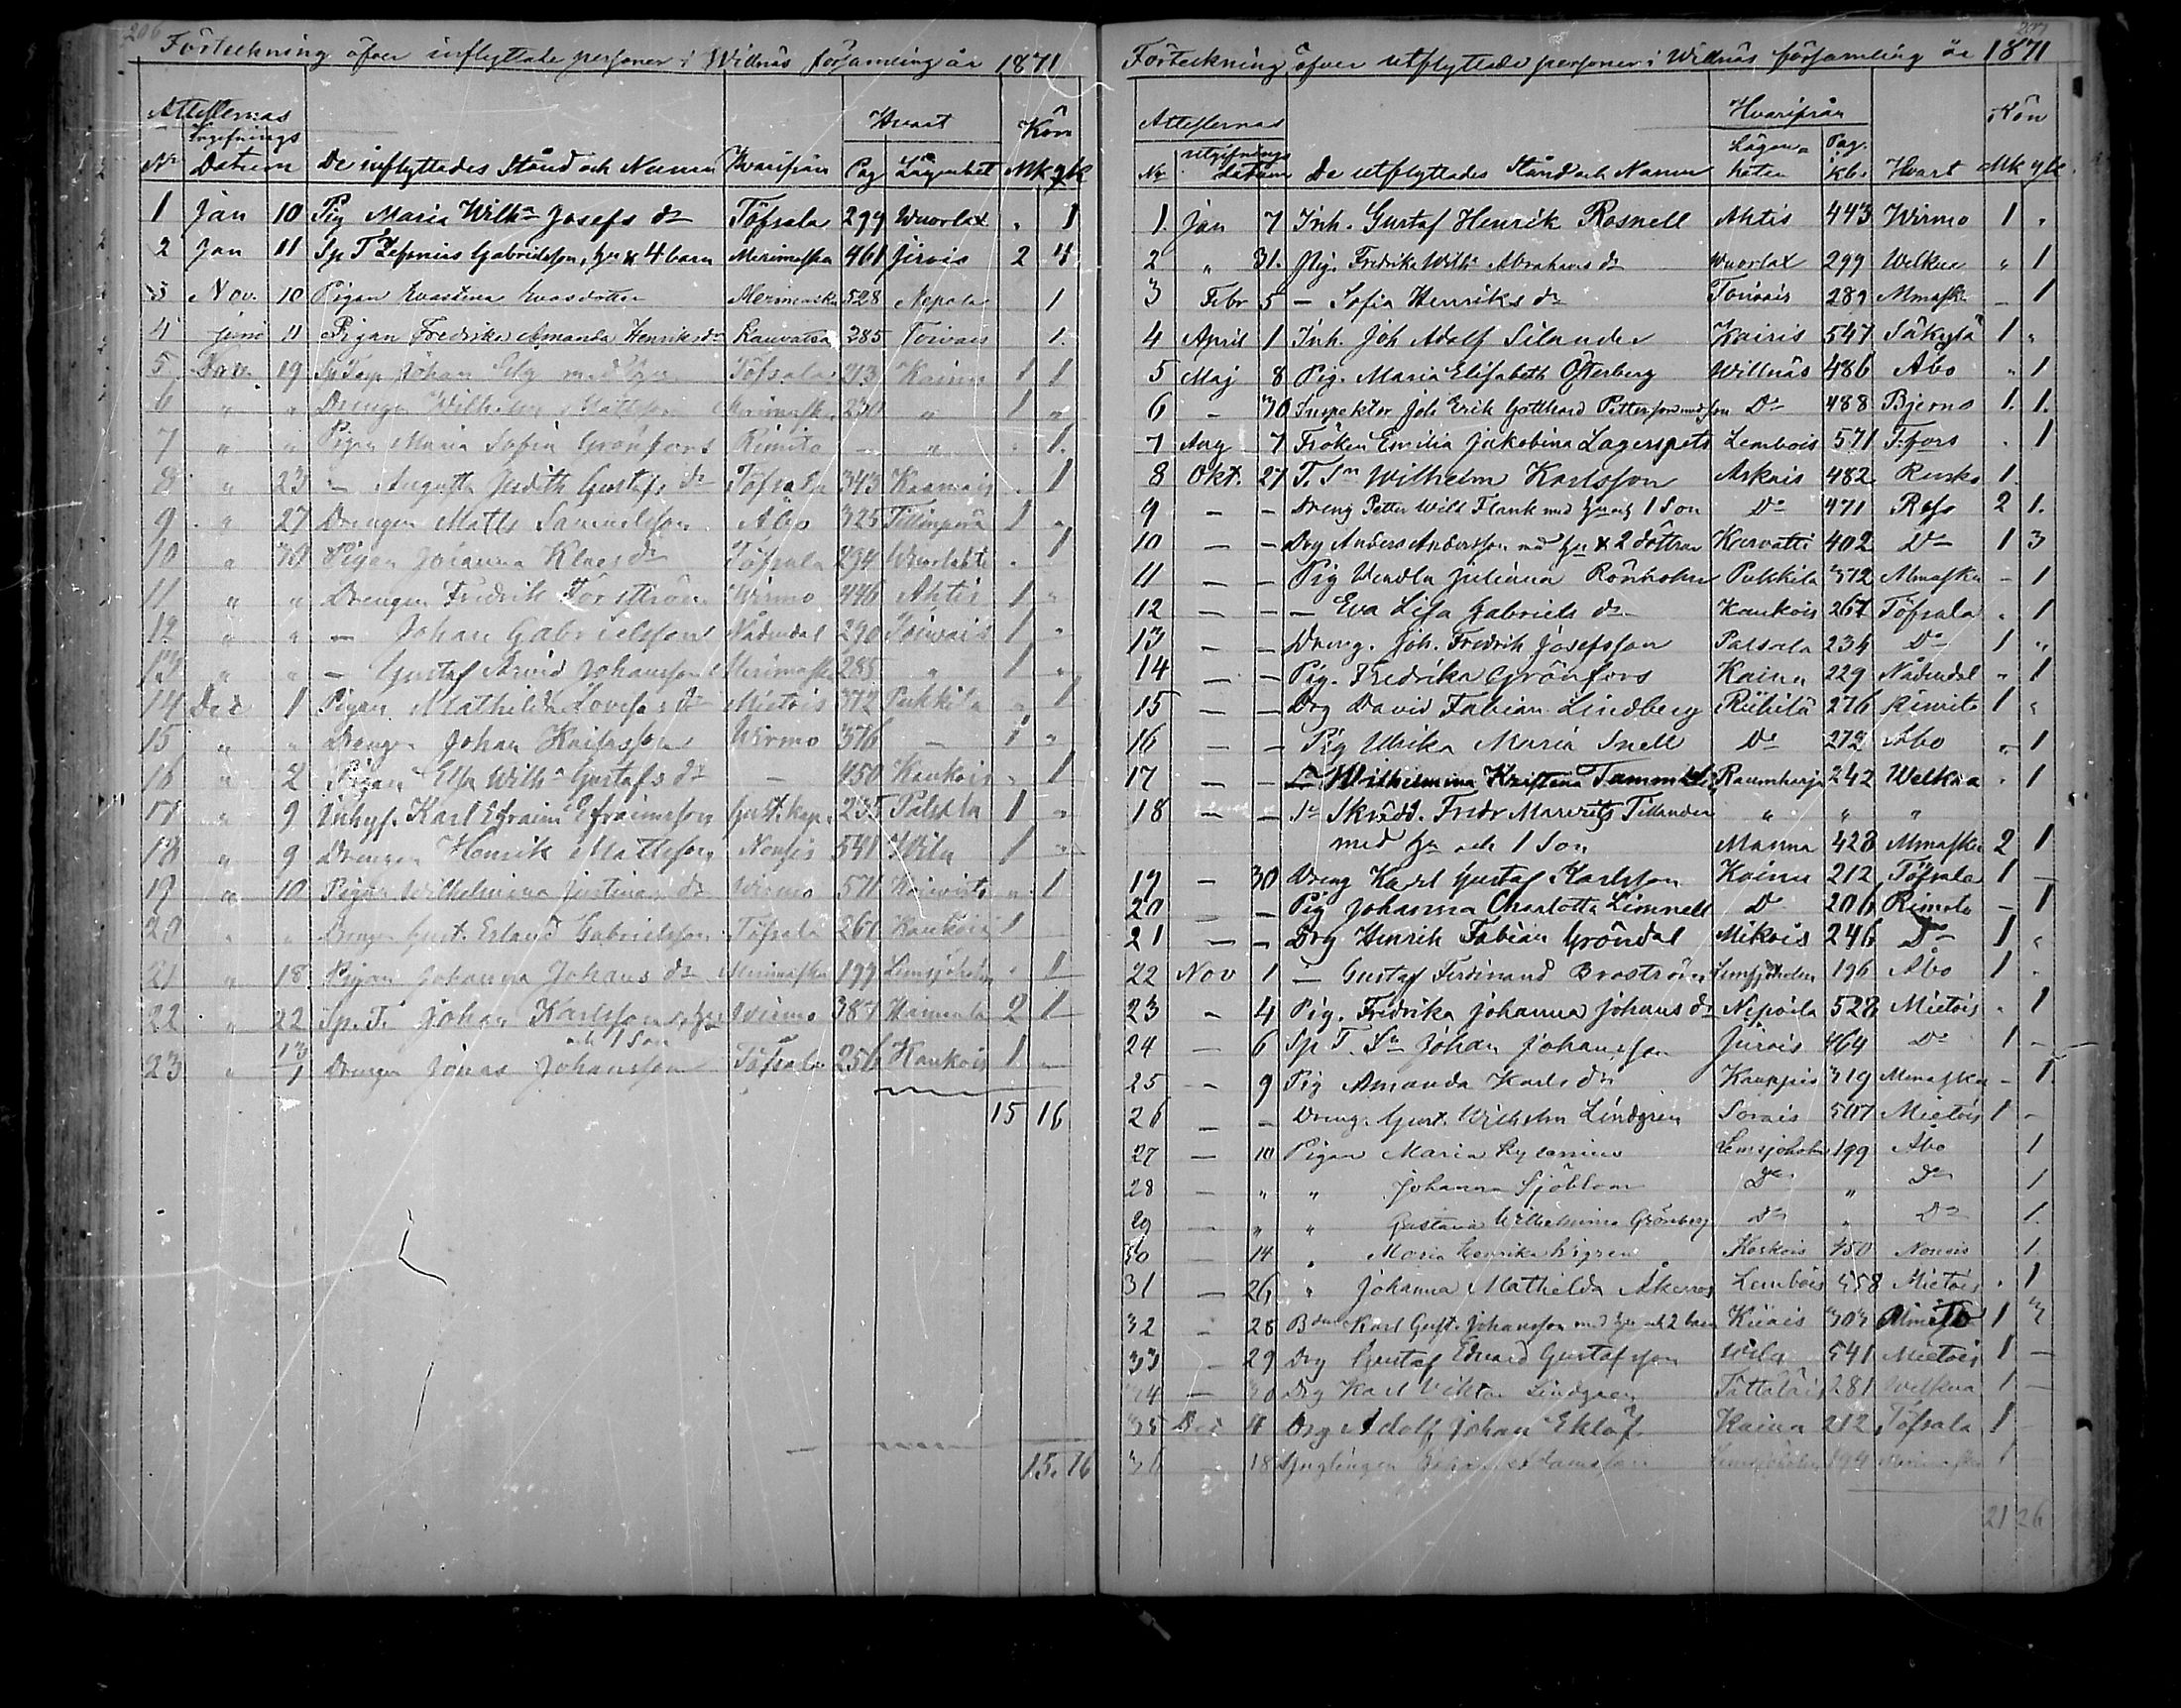 206
Förteckning öfver inflyttade personer i Willnäs församling år 1871
Attesternas Hvart Kön
Ingifnings
No Datum De inflyttades Stånd och Namn Hvarifrån Pag Lägenhet Mk qk
1 Jan 10 Pig Maria Wilh:a Josefs dr Töfsala 299 Wuorlax " 1
2 Jan 11 Sp T Zefanias Gabrielsson, hu & 4 barn Merimasku 461 Jirvis 2 4
3 Nov. 10 Pigan Evastina Evasdotter Merimasku 528 Nepola 1
4 Juni 11 Pigan Fredrika Amanda Henriksdr Lauvatsa 285 Toivais 1.
5 Nov. 19 Johan Selg med hu Töfsala 213 Kainu 1 1
6 " " Drengen Wilhelm Mattsson Merimasku 230 " 1 "
7 " " Pigan Maria Sofia Grönfors Rimito — " . 1.
8 " 23 — Augusta Judith Gustafs dr Töfsala 343 Kaamais . 1
9 " 27 Drengen Matts Samuelsson Åbo 325 1 "
10 " 30 Pigan Johanna Klaes dr Töfsala 294 Wuorlaks . 1
11 " " Drengen Fredrik Forsström Wirmo 446 Ahtis 1 "
12 " " — Johan Gabrielsson Nådendal 290 Toiwais 1 "
13 " " — Gustaf Arvid Johansson Merimasku 285 " 1 "
14 Dec 1 Pigan Mathilda Lovisa dr Mietois 372 Pukkila " 1
15 " " Drengen Johan Wirmo 376 — 1 "
16 " 2 Pigan Elsa Wilh:a Gustafs dr — 450 Kaukois " 1
17 " 9 Inhys. Karl Efraim Efraimsson Gust. kap. 235 Palsala 1 "
18 " 9 Drengen Henrik Mattsson Nousis 541 Wila 1 "
19 " 10 Pigan Wilhelmina Justina dr Wirmo 571 Koivisto " 1
20 " " Drengen Gust. Erland Gabrielsson Töfsala 261 Kaukois 1 —
21 " 18 Pigan Johanna Johans dr Merimasku 199 Lemsjöholm . 1
22 " 22 Sp. T. Johan Karlsson, hu Wirmo 387 2 1
och 1 son
23 " 13/1 Drengen Jonas Johansson Töfsala 256 Kaukois 1 —
15 16
15. 16
207
Förteckning öfver utflyttade personer i Willnäs församling år 1871
Attesternas Hvarifrån Kön
No utgifnings datum De utflyttades Stånd och Namn Lägenheten Pag. i kb. Hvart Mk qk.
1. Jan 7 Inh. Gustaf Henrik Rosnell Ahtis 443 Wirmo 1 "
2 " 31. Pig. Fredrika Wilh:a Abrahams dr Wuorlax 299 Welkua " 1
3 Febr 5 — Sofia Henriks dr Toivais 289 Mmasku — 1
4 April 1 Inh. Joh Adolf Silander Kairis 547 Säkylä 1 "
5 Maj 8 Pig. Maria Elisabeth Österberg Willnäs 486 Åbo " 1
6 - 30 Inspektor Joh Erik Gotthard Pettersson med fru Do 488 Bjerno 1. 1.
7 Aug 7 Fröken Emilia Jakobina Lagerspets Lembois 571 T.fors . 1
8 Okt. 27 T. Sn Wilhelm Karlsson Askais 482 Rusko 1.
9 — — Dreng Petter Wilh Flank med hu och 1 Son Do 471 Reso 2 1.
10 — — Drg Anders Andersson med hu & 2 döttrar Kurvatti 402 Do 1 3
11 — — Pig Wendla Juliana Rönholm Pukkila 372 Mmasku — 1
12 — — — Eva Lisa Gabriels dr Kaukois 267 Töfsala . 1
13 — — Dreng. Joh. Fredrik Josefsson Palsala 234 Do 1 "
14 — — Pig. Fredrika Grönfors Kainu 229 Nådendal " 1
15 — — Drg David Fabian Lindberg Riihilä 276 Rimito 1 "
16 — — Pig Ulrika Maria Snell Do 272 Åbo " 1
17 — — Wilhelmina Kristina Tammelin Raumharju 242 Welkua . 1
18 — — Sn Skrädd. Fredr Mauritz Tillander " " "
med hu och 1 Son Manna 428 Mmasku 2 1
19 — 30 Dreng Karl Gustaf Karlsson Kainu 212 Töfsala 1 —
20 — Pig Johanna Charlotta Limnell Do 206 Rimito — 1
21 — — Drg Henrik Fabian Gröndal Mikois 246 Do 1 "
22 Nov 1 — Gustaf Ferdinand Broström Lemsjöholm 196 Åbo 1 .
23 - 4 Pig. Fredrika Johanna Johans dr Nepoila 528 Mietois . 1
24 — 6 Sp T. Sn Johan Johansson Jirvais 464 Do 1 —
25 — 9 Pig Amanda Karls dr Kauppis 319 Mmasku — 1.
26 — — Dreng. Gust. Wilhelm Lindgren Sorais 507 Mietois 1 —
27 — 10 Pigan Maria Lemsjöholm 199 Åbo 1
28 — " " Johanna Sjöblom Do " Do 1
29 — " " Gustava Wilhelmina Grönberg Do " Do 1.
30 — 14 " Maria Henrika Kaskois 450 Nousis 1.
31 — 26 " Johanna Mathilda Åkerros Lembois 558 Mietois . 1
32 — 28 Karl Gust. Johansson med hu och 2 barn Kiiais 303 1 3
33 — 29 Drg Gustaf Eduard Gustafsson Wila 541 Mietois 1 —
34 — 30 Drg Karl Viktor Lindgren 281 Welkua 1 —
35 Dec 11 Drg Adolf Johan Eklöf Kainu 212 Töfsala 1
36 — 18 Ynglingen Adamsson Lemsjöholm 194 Merimasku 1
21 26